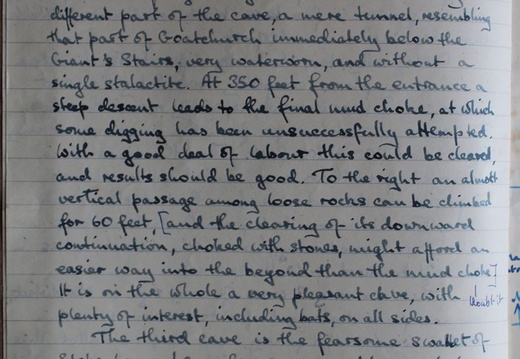 different part of the cave, a mere tunnel, resembling
that part of Goatchurch immediately below the
Giant's Stairs, very waterworn, and without a
single stalactite. At 350 feet from the entrance a
steep descent leads to the final mud choke, at which
some digging has been unsuccessfully attempted.
With a good deal of labour this could be cleared,
and results should be good. To the right an almost
vertical passage among loose rocks can be climbed
for 60 feet, [and the clearing of its downward
continuation, choked with stones, might afford an
easier way into the beyond than the mud choke]
It is on the whole a very pleasant cave, with
I doubt it
plenty of interest, including bats, on all sides.
The third cave is the fearsome swallet of